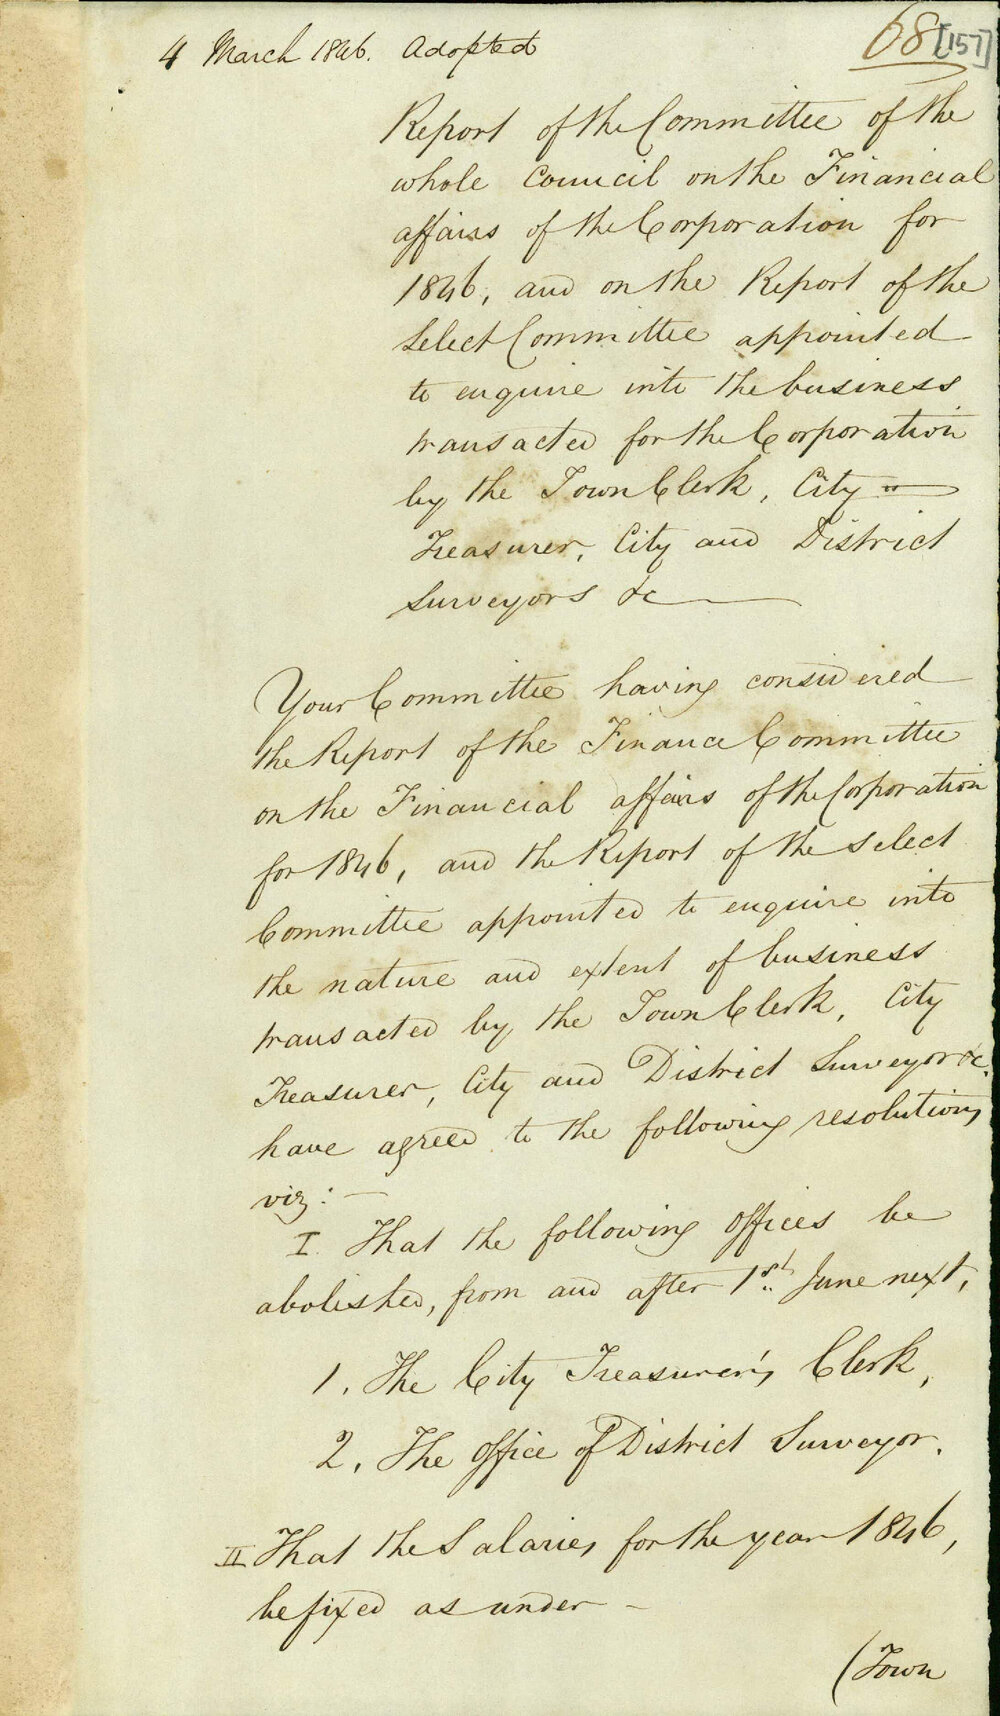 4 March 1846. Adopted
68 [157]
Report of the Committee of the
whole Council on the Financial
affairs of the Corporation for
1846, and on the Report of the
Select Committee appointed
to enquire into the business
transacted for the Corporation
by the Town Clerk, City
Treasurer, City and District
Surveyors &c
Your Committee having considered
the Report of the Finance Committee
on the Financial affairs of the Corporation
for 1846, and the Report of the select
Committee appointed to enquire into
the nature and extent of business
transacted by the Town Clerk, City
Treasurer, City and District Surveyor &c.
have agreed to the following resolutions,
viz: —
I That the following offices be
abolished, from and after 1st. June next,
1. The City Treasurer's Clerk,
2. The office of District Surveyor.
II That the Salaries for the year 1846,
be fixed as under –
(Town